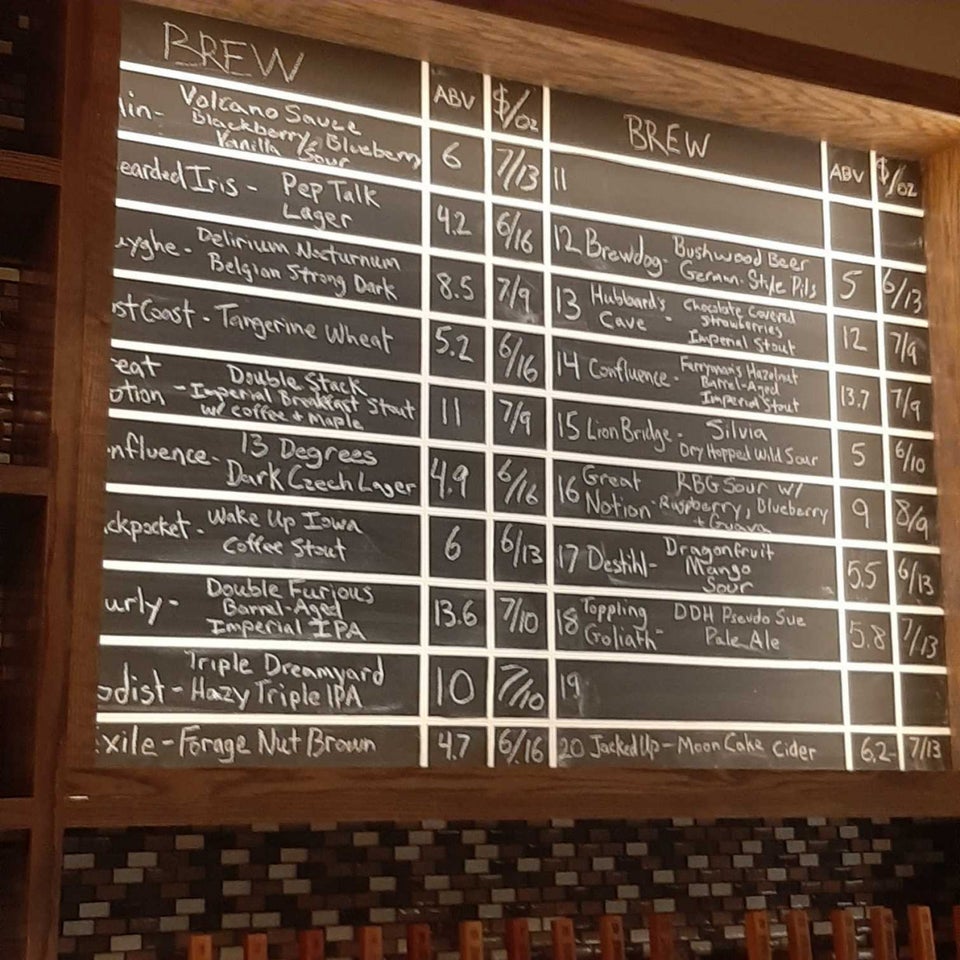 BREW ABV $/oz
lin- Volcano Sauce
Blackberry, Blueberry
Vanilla Sour 6 7/13
earded Iris - Pep Talk
Lager 4.2 6/16
uyghe - Delirium Nocturnum
Belgian Strong Dark 8.5 7/9
st Coast - Tangerine Wheat 5.2 6/16
reat Double Stack
otion - Imperial Breakfast Stout
w/ coffee + maple 11 7/9
nfluence - 13 Degrees
Dark Czech Lager 4.9 6/16
ckpocket - Wake Up Iowa
Coffee Stout 6 6/13
urly - Double Furious
Barrel-Aged
Imperial IPA 13.6 7/10
odist - Triple Dreamyard
Hazy Triple IPA 10 7/10
xile - Forage Nut Brown 4.7 6/16
BREW ABV $/oz
11
12 Brewdog - Bushwood Beer
German-Style Pils 5 6/13
13 Hubbard's Chocolate Covered
Cave - Strawberries
Imperial Stout 12 7/9
14 Confluence - Ferryman's Hazelnut
Barrel-Aged
Imperial Stout 13.7 7/9
15 Lion Bridge - Silvia
Dry Hopped Wild Sour 5 6/10
16 Great RBG Sour w/
Notion - Raspberry, Blueberry
+ Guava 9 8/9
17 Destihl - Dragonfruit
Mango
Sour 5.5 6/13
18 Toppling DDH Pseudo Sue
Goliath - Pale Ale 5.8 7/13
19
20 Jacked Up - Moon Cake Cider 6.2 7/13